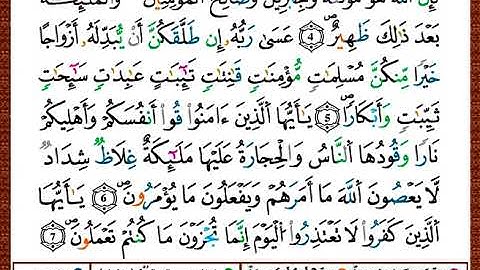 بَعْدَ ذَٰلِكَ ظَهِيرٌ ۝٤ عَسَىٰ رَبُّهُۥٓ إِن طَلَّقَكُنَّ أَن يُبْدِلَهُۥٓ أَزْوَٰجًا
خَيْرًا مِّنكُنَّ مُسْلِمَٰتٍ مُّؤْمِنَٰتٍ قَٰنِتَٰتٍ تَٰٓئِبَٰتٍ عَٰبِدَٰتٍ سَٰٓئِحَٰتٍ
ثَيِّبَٰتٍ وَأَبْكَارًا ۝٥ يَٰٓأَيُّهَا ٱلَّذِينَ ءَامَنُوا۟ قُوٓا۟ أَنفُسَكُمْ وَأَهْلِيكُمْ
نَارًا وَقُودُهَا ٱلنَّاسُ وَٱلْحِجَارَةُ عَلَيْهَا مَلَٰٓئِكَةٌ غِلَاظٌ شِدَادٌ
لَّا يَعْصُونَ ٱللَّهَ مَآ أَمَرَهُمْ وَيَفْعَلُونَ مَا يُؤْمَرُونَ ۝٦ يَٰٓأَيُّهَا
ٱلَّذِينَ كَفَرُوا۟ لَا تَعْتَذِرُوا۟ ٱلْيَوْمَ إِنَّمَا تُجْزَوْنَ مَا كُنتُمْ تَعْمَلُونَ ۝٧